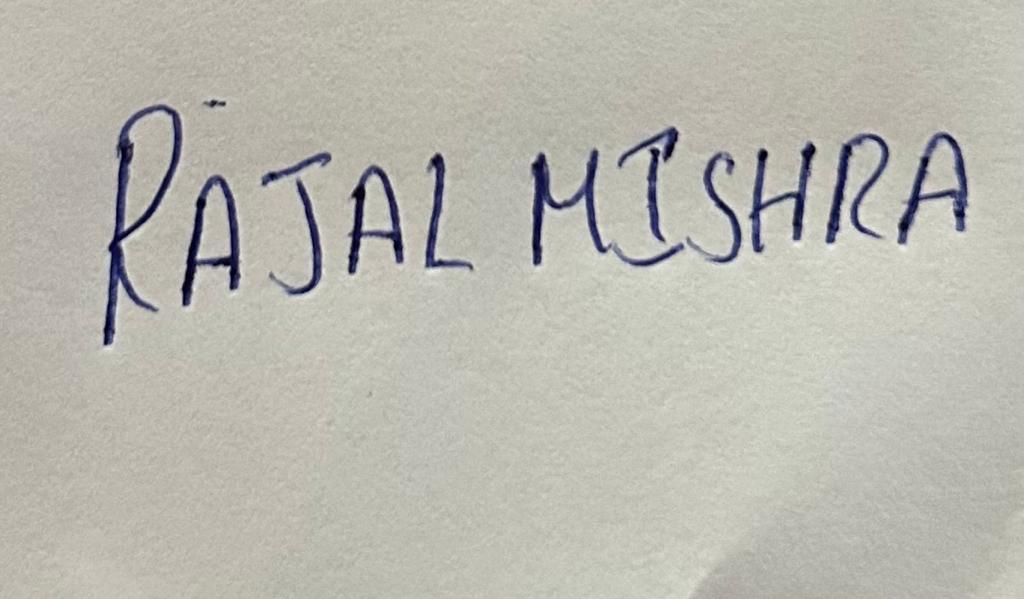 RAJAL MISHRA